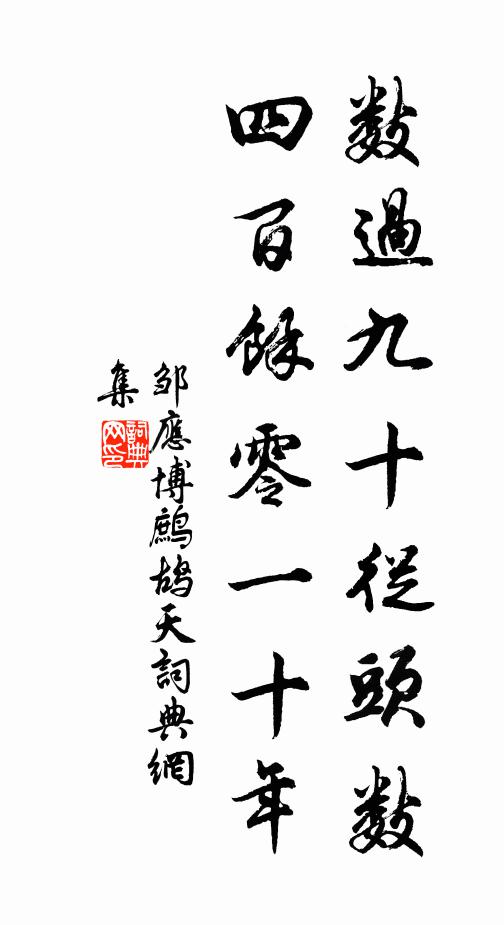 數過九十從頭數
四百餘零一十年
鄒應博鷓鴣天詞典網
集
詞典
网印